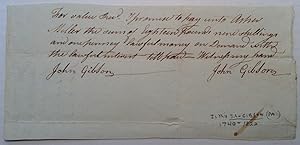 For value Rec.d I promise to pay unto Asher
Miller the sum of Eighteen Pounds nine shillings
and one penney Lawful money on Demand with
the Lawful interest till paid Witness my hand
John Gibbon John Gibbons
JOHN GIBBON
1740?